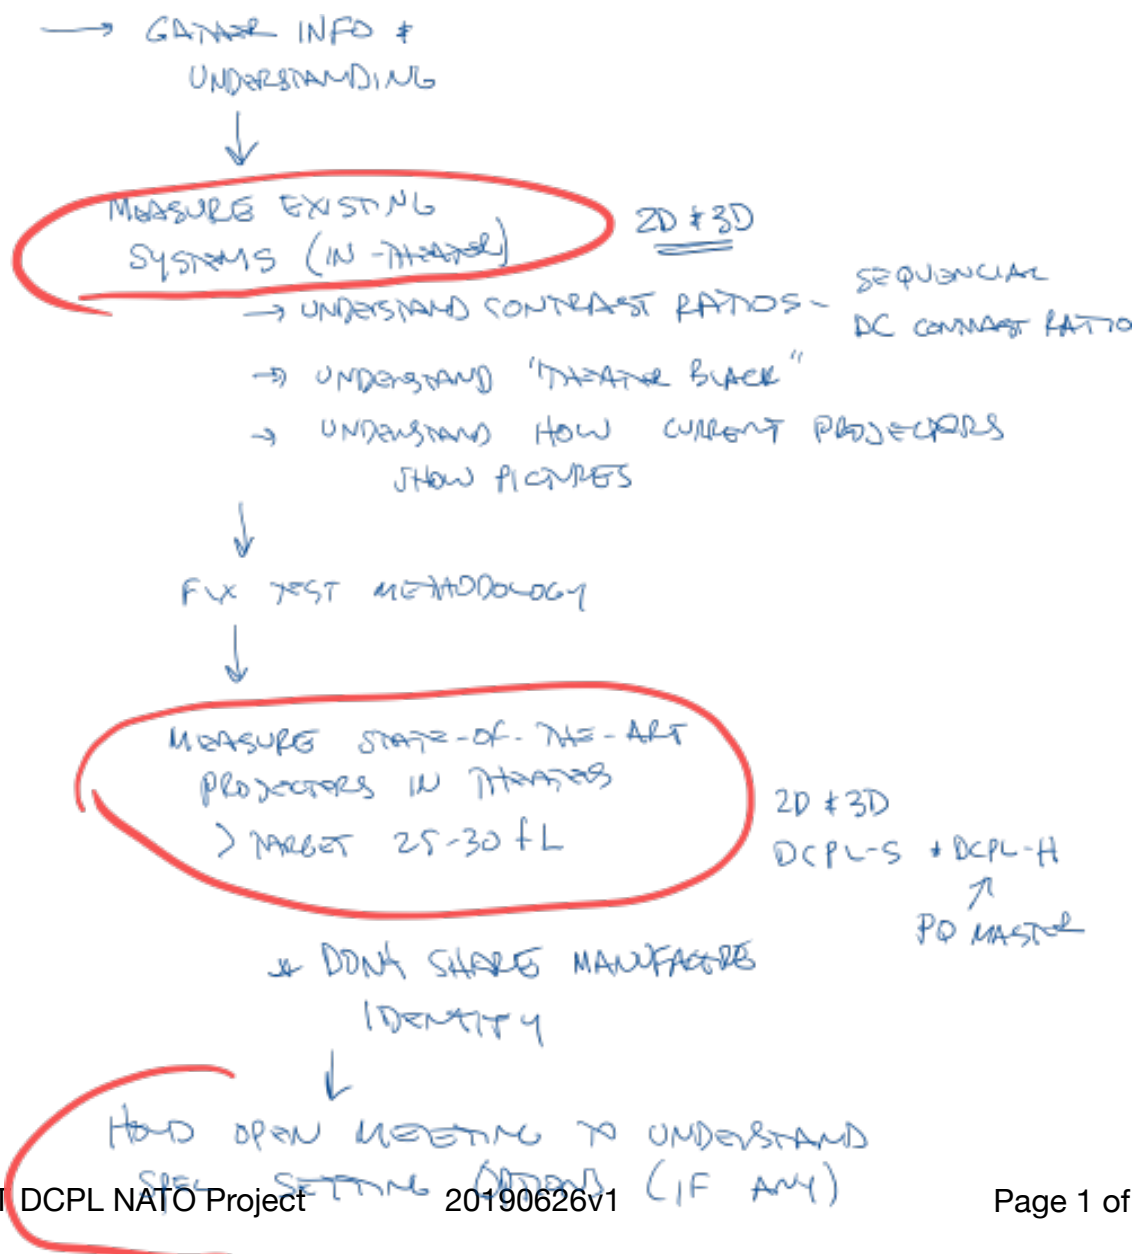 → GATHER INFO &
UNDERSTANDING
MEASURE EXISTING
SYSTEMS (IN-THEATER)
2D & 3D
→ UNDERSTAND CONTRAST RATIOS -
SEQUENCIAL
DC CONTRAST RATIO
→ UNDERSTAND "THEATER BLACK"
→ UNDERSTAND HOW CURRENT PROJECTORS
SHOW PICTURES
FIX TEST METHODOLOGY
MEASURE STATE-OF-THE-ART
PROJECTORS IN THEATERS
> TARGET 25-30 fL
2D & 3D
DCPL-S & DCPL-H
PQ MASTER
* DON'T SHARE MANUFACTURE
IDENTITY
HOLD OPEN MEETING TO UNDERSTAND
SPEC SETTING OPTIONS (IF ANY)
DCPL NATO Project 20190626v1 Page 1 of